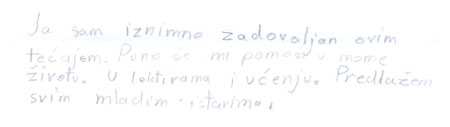 Ja sam iznimno zadovoljan ovim
tečajem. Puno će mi pomoći u mome
životu. U lektirama i učenju. Predlažem
svim mladim i starima.